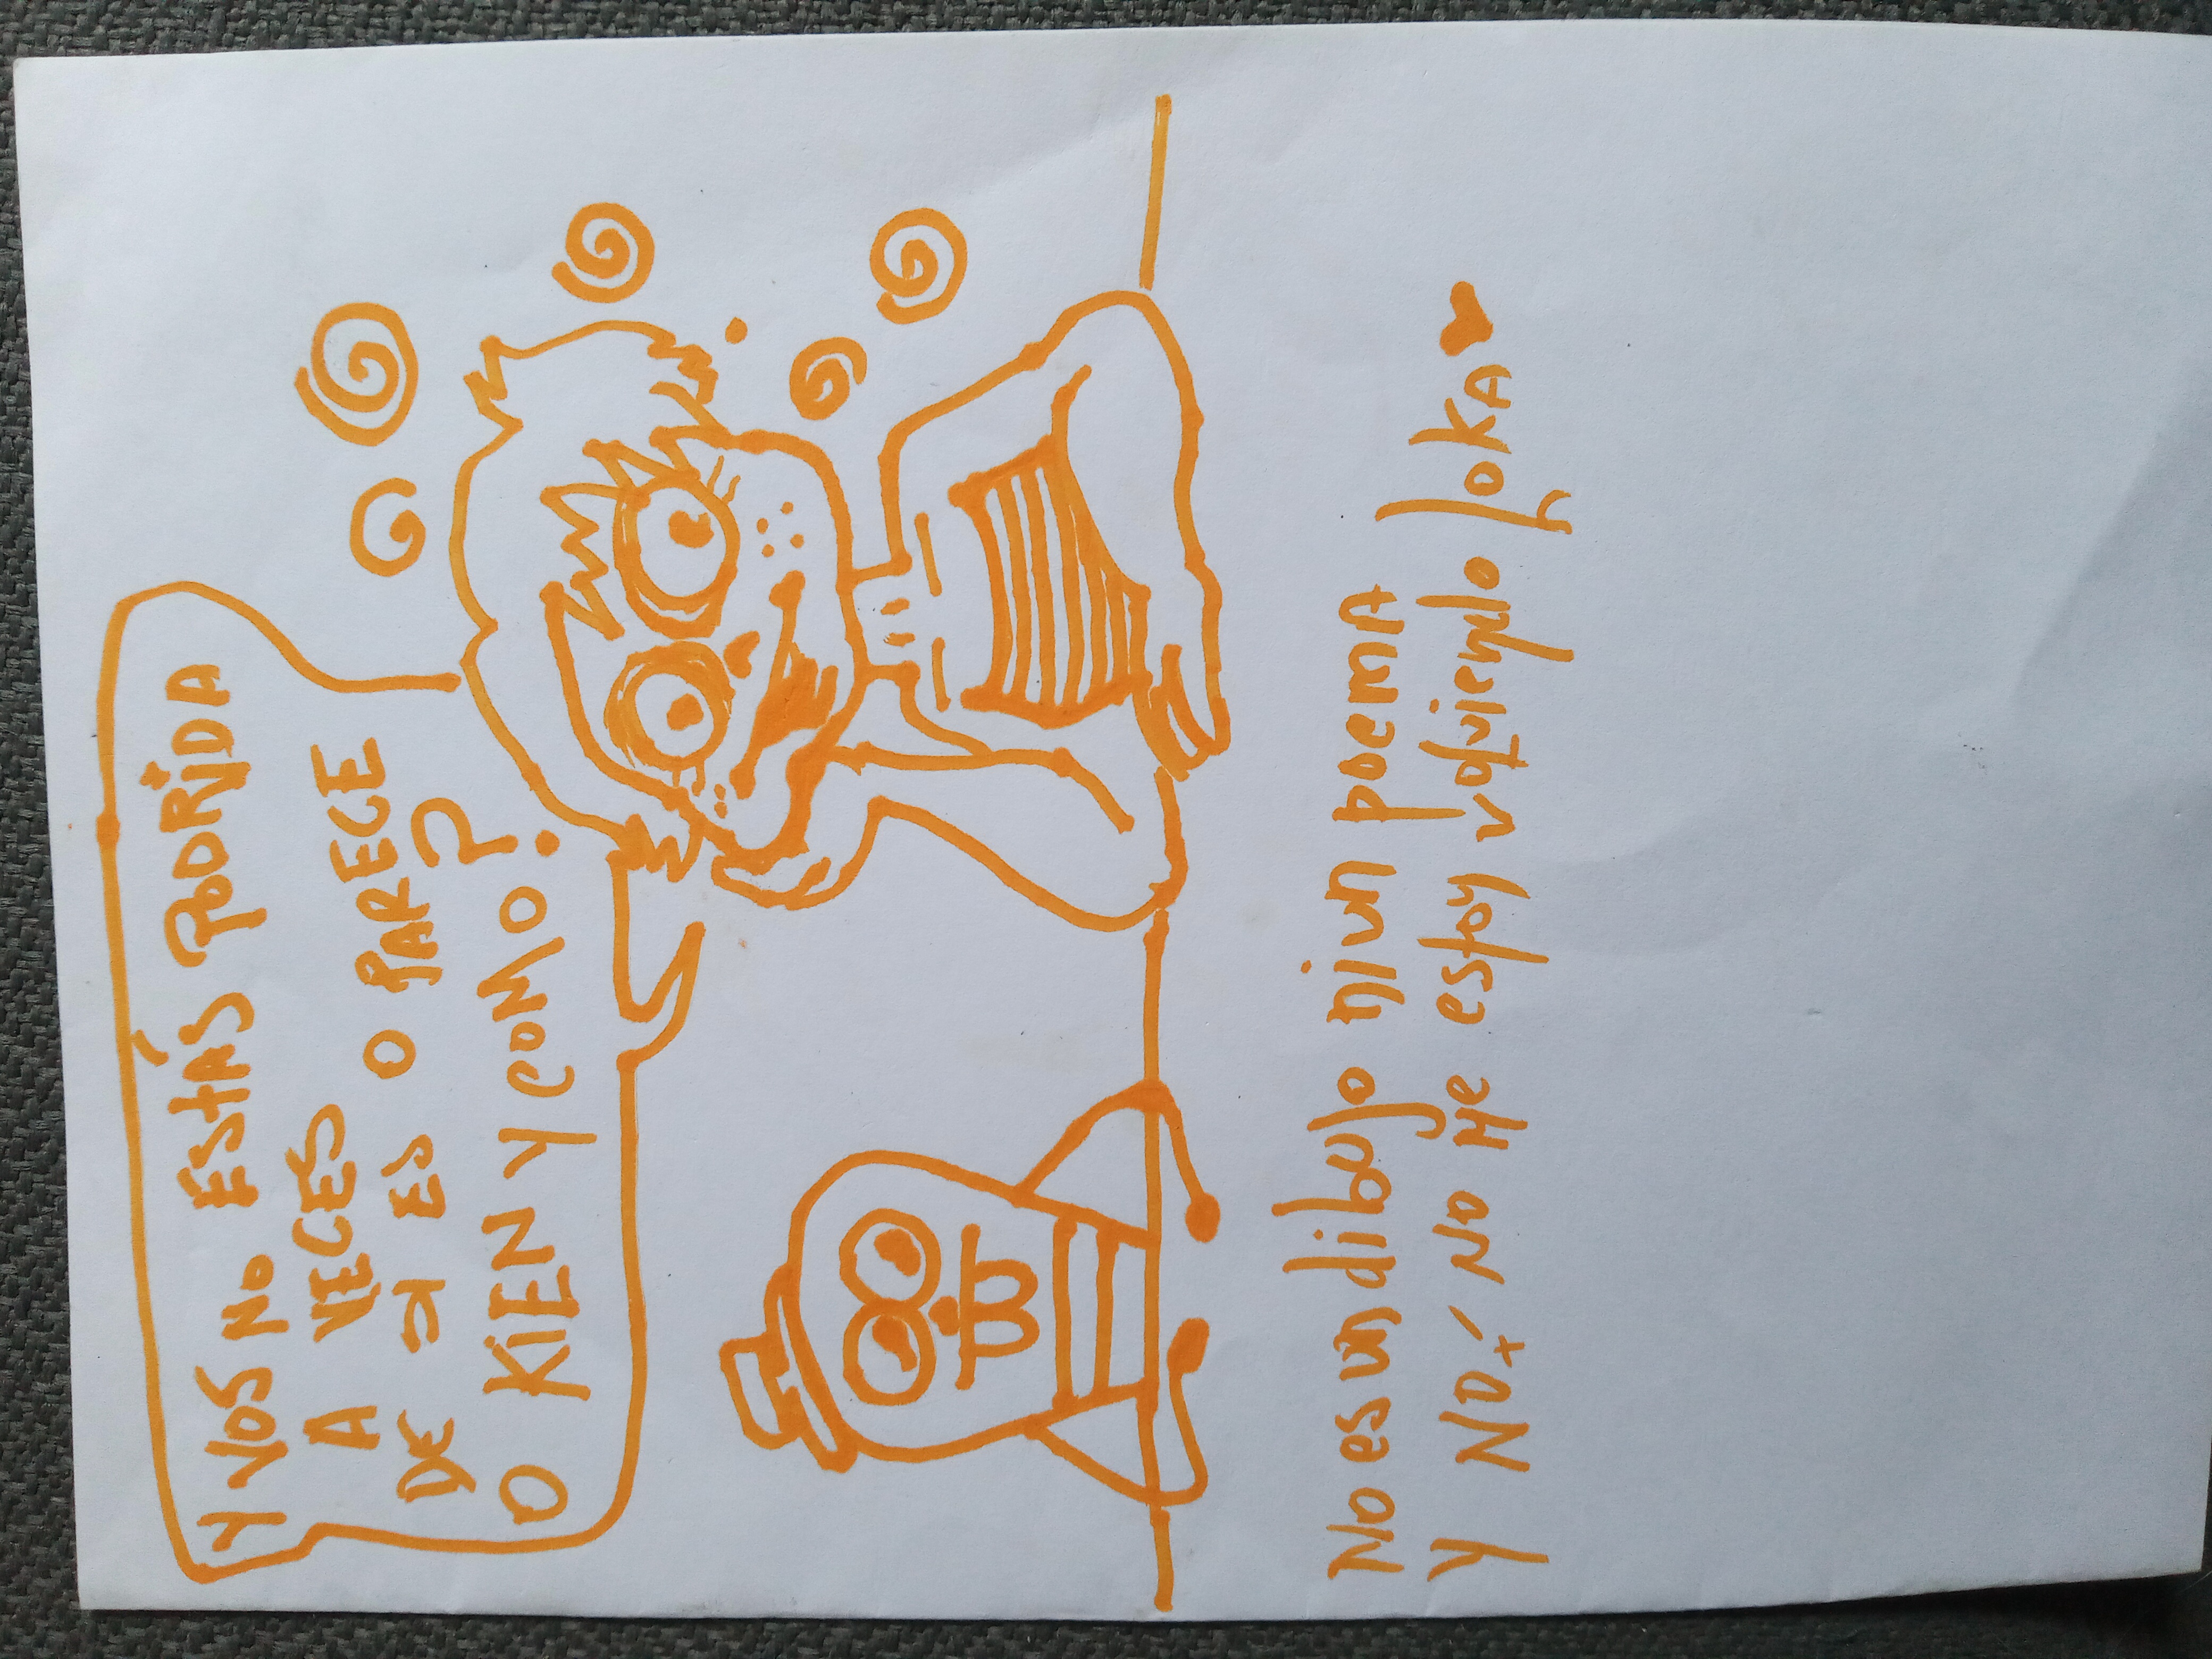 Y VOS NO ESTÁS PODRIDA
A VECES
DE SI ES O PARECE
O KIEN Y COMO?
No es un dibujo ni un poema
Y NO, NO ME estoy volviendo LokA